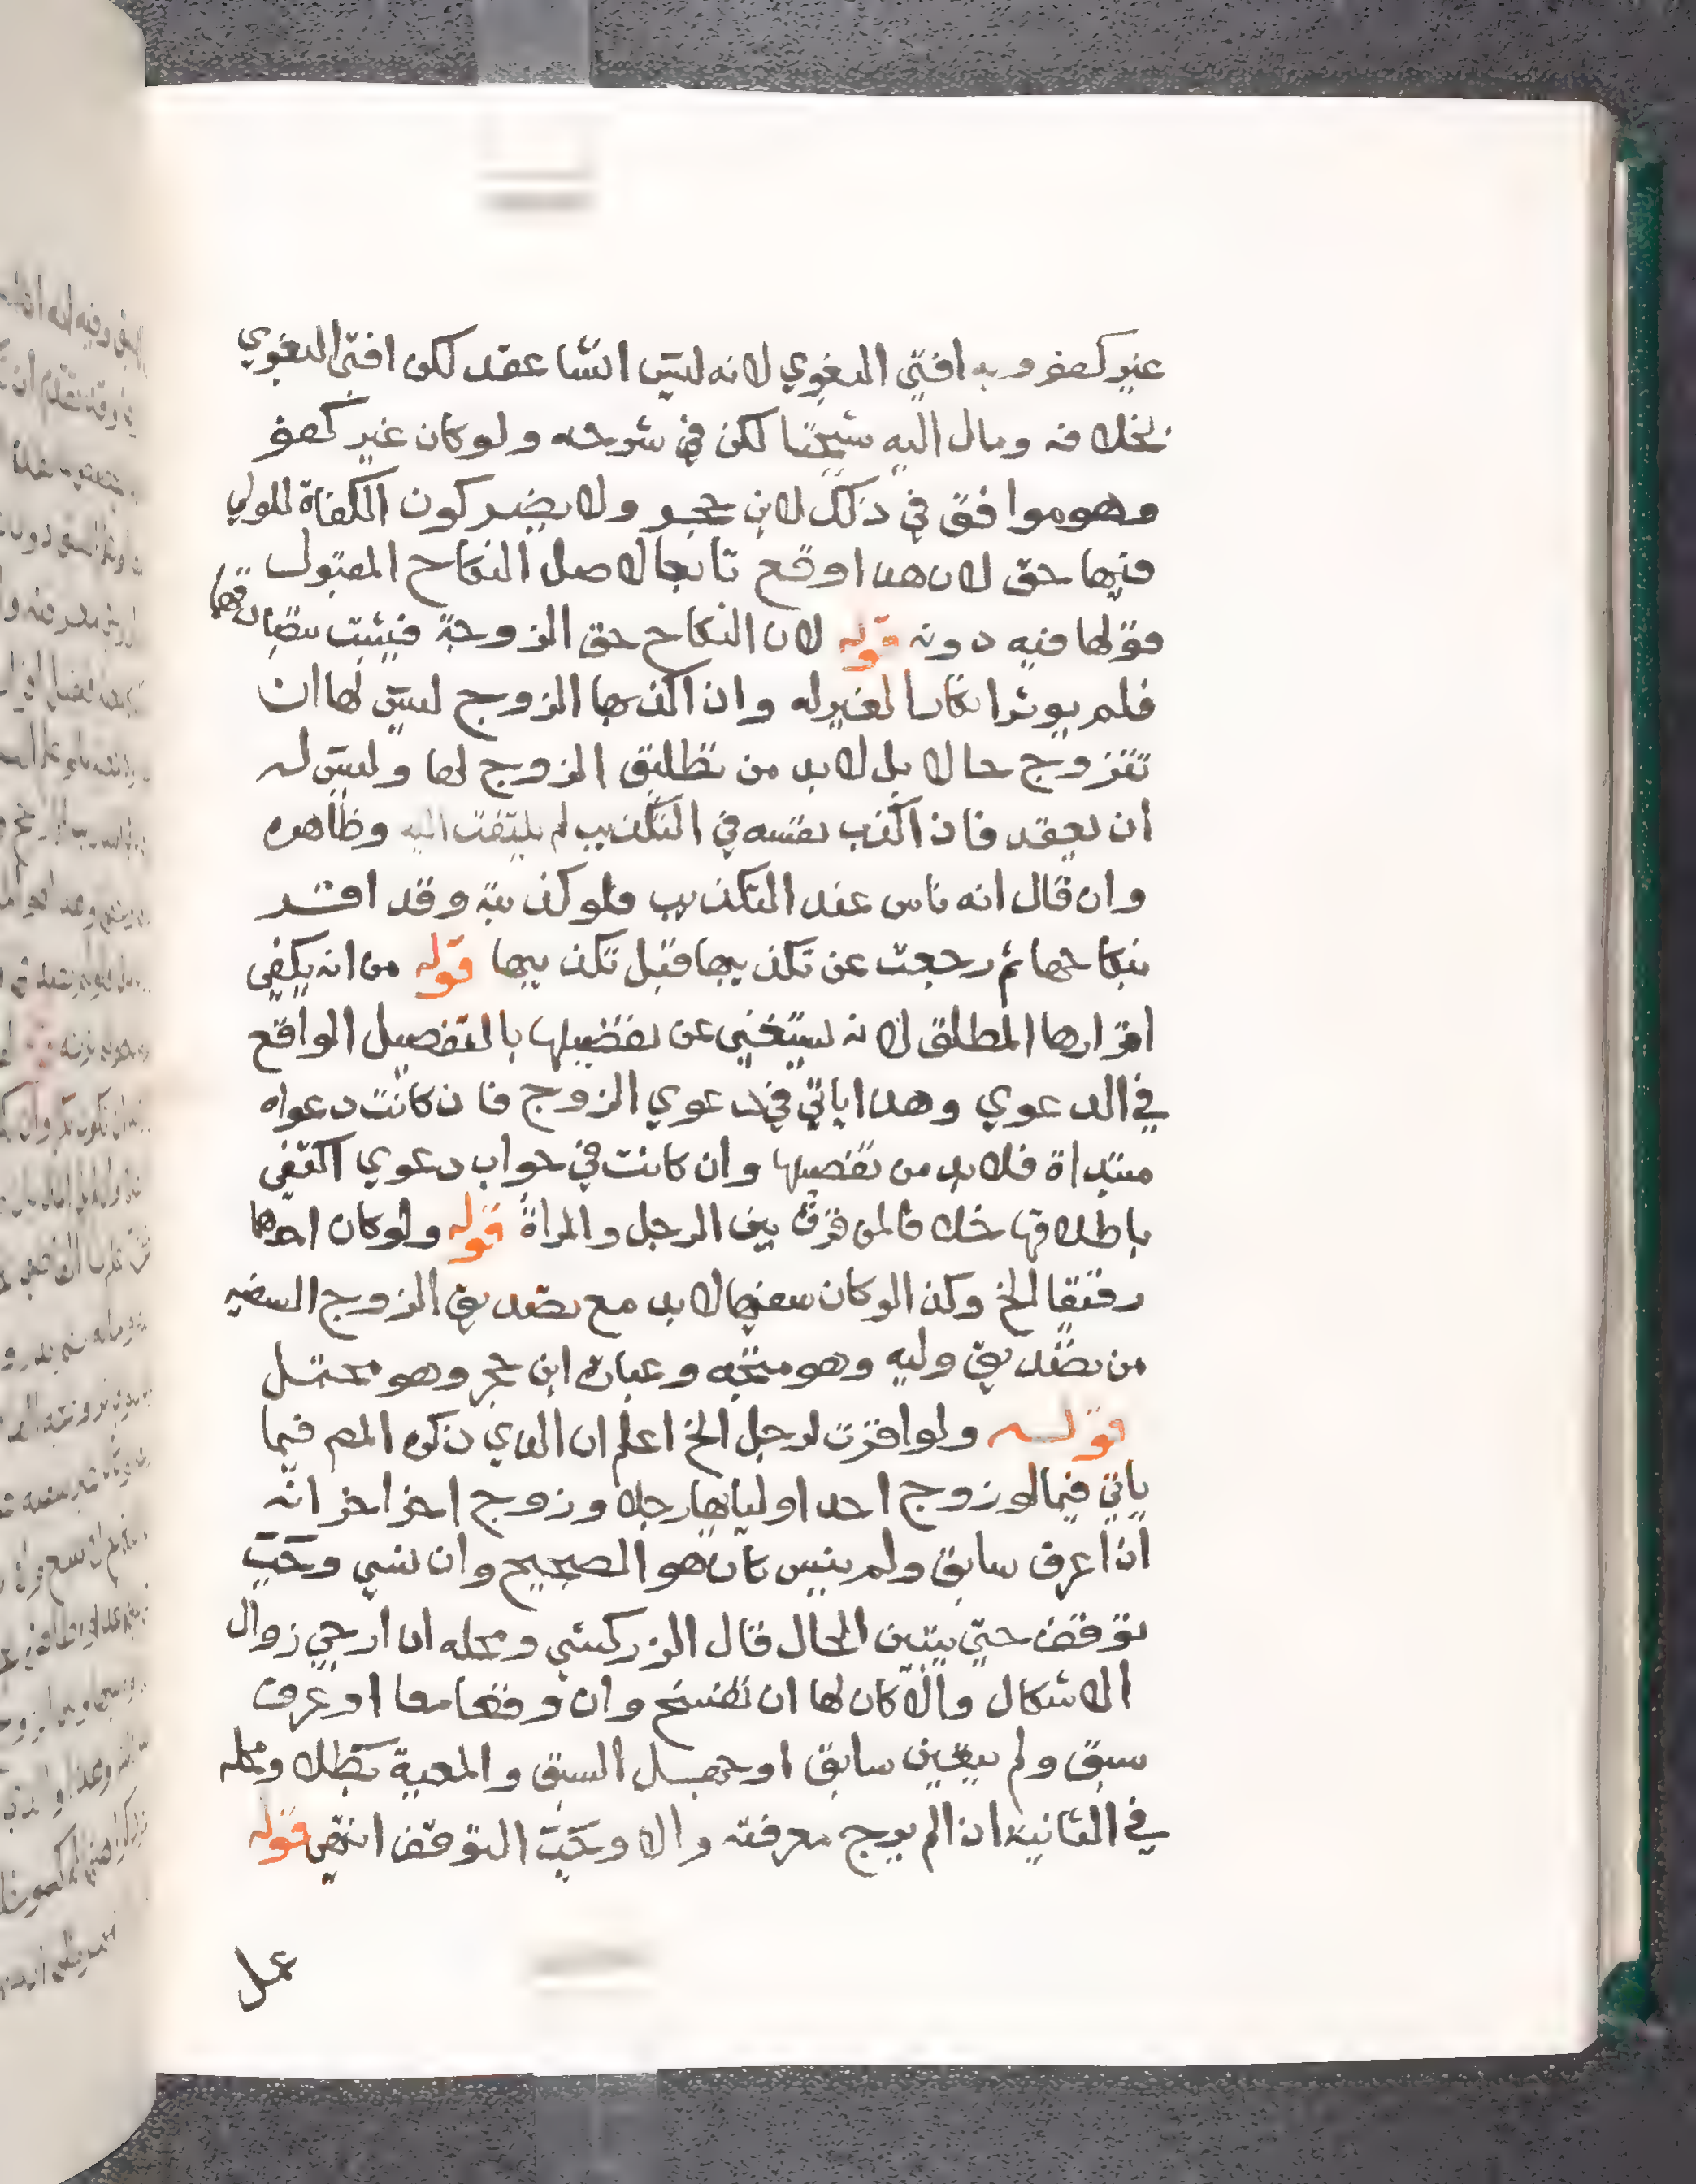 غير كفؤ وبه افتي البغوي لانه ليس انشا عقد لكن افتي البغوي
بخلافه ومال اليه شيخنا لكن في شرحه ولو كان غير كفؤ
وهو موافق في ذلك لابن حجر ولا يضر كون الكفاة للولي
فيها حق لان هذا وقع تابعا لاصل النكاح المقبول
قولها فيه دونه قوله لان النكاح حق الزوجة فيثبت بتصادقهما
فلم يوثر انكار الغير له واذا اكذبها الزوج ليس لها ان
تتزوج حالا بل لا بد من تطليق الزوج لها وليس له
ان يعقد فاذا اكذب نفسه في التكذيب لم يلتفت اليه وظاهره
وان قال انه ناس عند التكذيب فلو كذبته وقد اقر
بنكاحها ثم رجعت عن تكذيبها قبل تكذيبها قوله من انه يكفي
اقرارها المطلق لانه يستغني عن تفصيلها بالتفصيل الواقع
في الدعوي وهذا ياتي في دعوي الزوج فان كانت دعواه
مبتداة فلا بد من تفصيلها وان كانت في جواب دعوي اكتفي
باطلاقها خلافا لمن فرق بين الرجل والمراة قوله ولو كان احدهما
رقيقا الخ وكذا لو كان سفيها لا بد مع تصديق الزوج السفيه
من تصديق وليه وهو متجه وعبارة ابن حجر وهو محتمل
قوله ولو اقرت لرجل الخ اعلم ان الذي ذكره المص فيما
ياتي فيما لو زوج احد اوليائها رجلا وزوج اخر اخر انه
اذا عرف سابق ولم ينس كان هو الصحيح وان نسي وجب
توقف حتي يتبين الحال قال الزركشي ومحله اذا رجي زوال
الاشكال والا كان لها ان تفسخ وان وقعا معا او عرف
سبق ولم يتعين سابق او جهل السبق والمعية بطلا ومحله
في الثانية اذا لم يرج معرفته والا وجب التوقف انتهي قوله
عمل